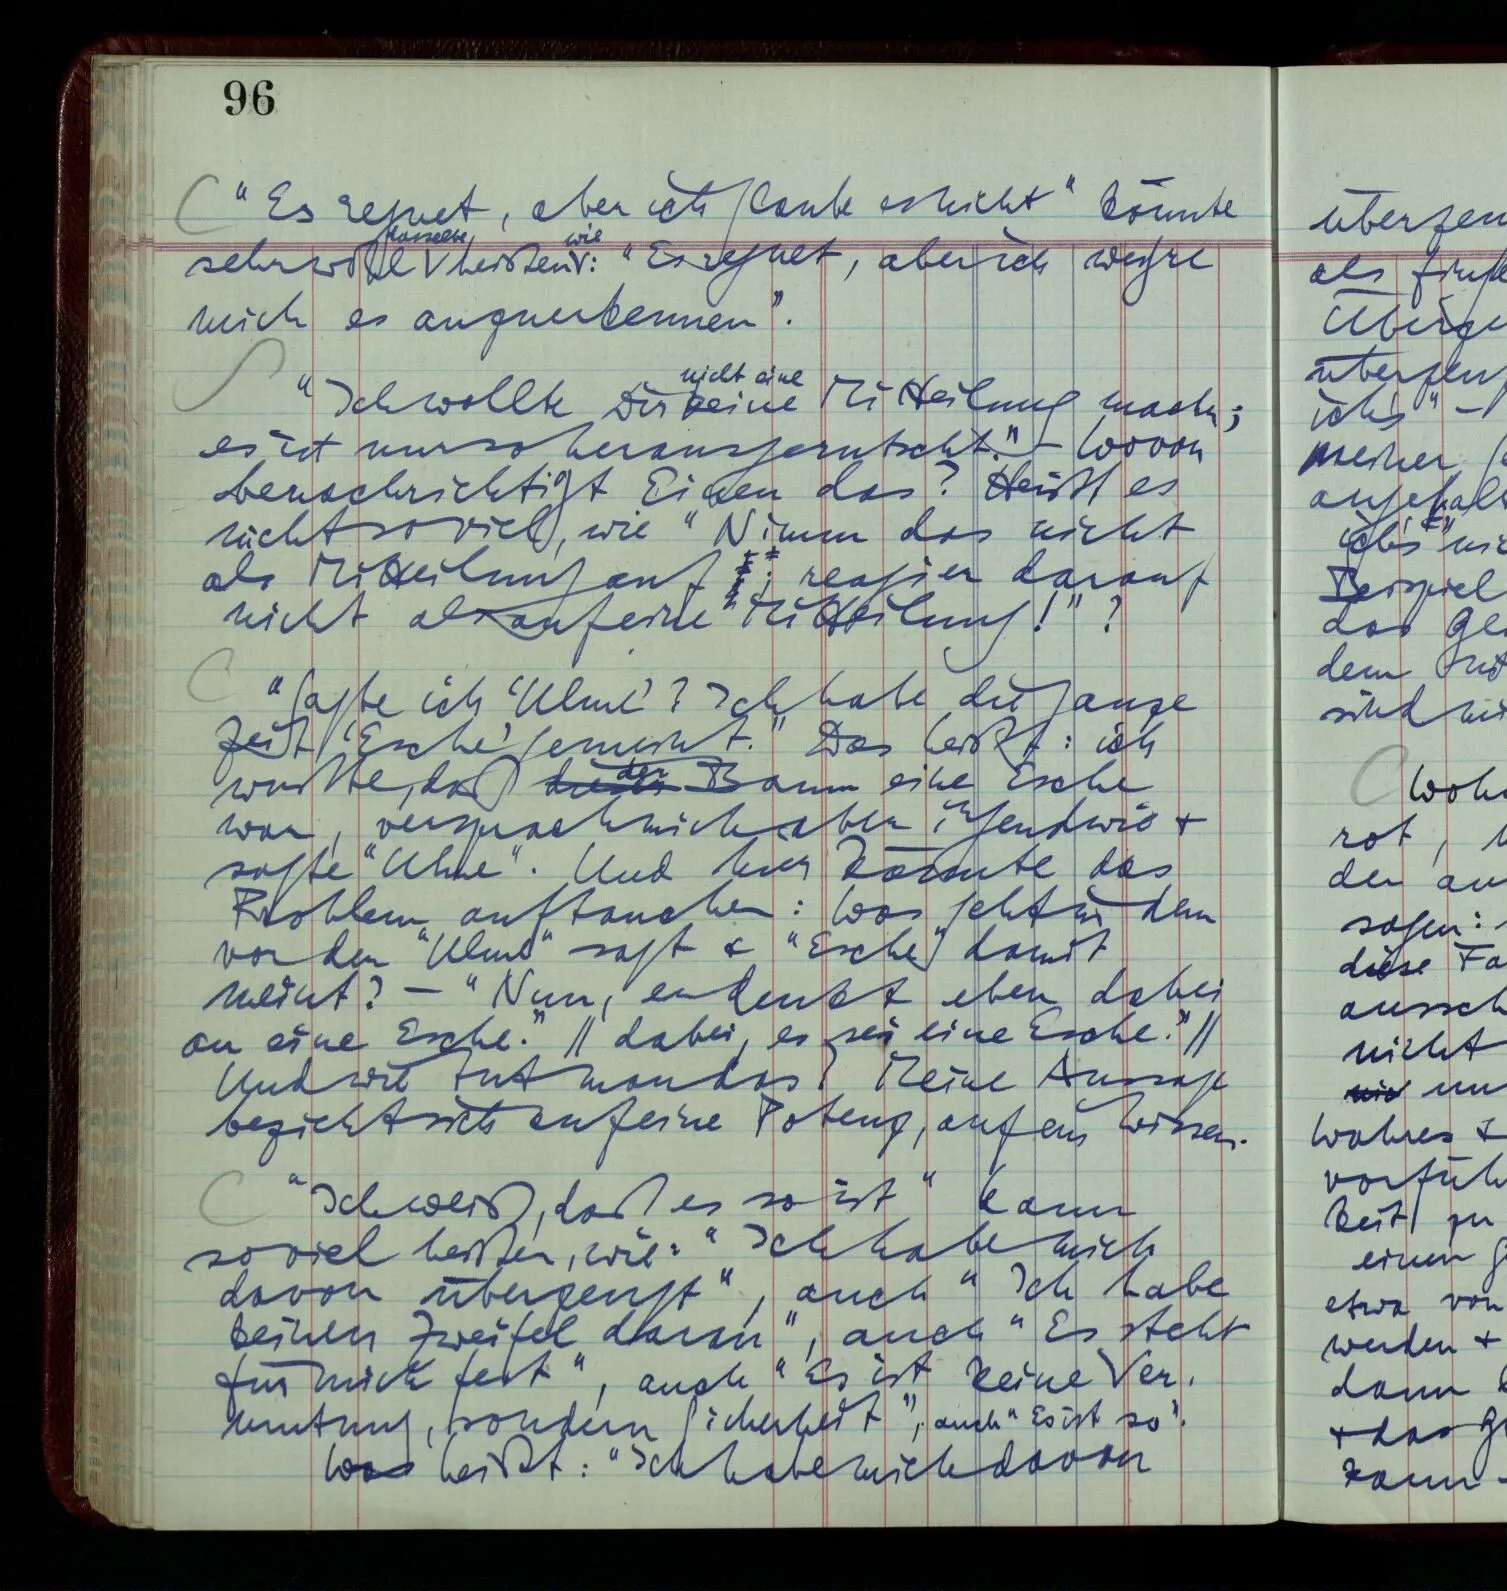 96
"Es regnet, aber ich glaube es nicht" könnte
sehr wohl dasselbe heißen wie: "Es regnet, aber ich weigre
mich es anzuerkennen".
"Ich wollte Dir nicht eine Mitteilung machen;
es ist nur so herausgerutscht." – Wovon
benachrichtigt Einen das? Heißt es
nicht soviel, wie "Nimm das nicht
als Mitteilung auf; reagier darauf
nicht als auf eine Mitteilung!" ?
"Sagte ich 'Ulme'? Ich habe die ganze
Zeit 'Esche' gemeint." Das heißt: ich
wußte, daß der Baum eine Esche
war, versprach mich aber irgendwie &
sagte "Ulme". Und hier könnte das
Problem auftauchen: Was geht in dem
vor der "Ulme" sagt & "Esche" damit
meint? – "Nun, er denkt eben dabei
an eine Esche." || dabei, es sei eine Esche." ||
Und wie tut man das? Meine Aussage
bezieht sich auf eine Potenz, auf ein Wissen.
"Ich weiß, daß es so ist" kann
soviel heißen, wie: "Ich habe mich
davon überzeugt", auch "Ich habe
keinen Zweifel daran", auch "Es steht
für mich fest", auch "Es ist keine Ver-
mutung, sondern Sicherheit", auch "Es ist so".
Was heißt: "Ich habe mich davon
als
ichs" –
meiner
ichs"
Beispiel
das
dem
sind
rot,
den
sagen:
diese
nicht
Wahres &
einen
etwa von
werden &
dann
& das
kann